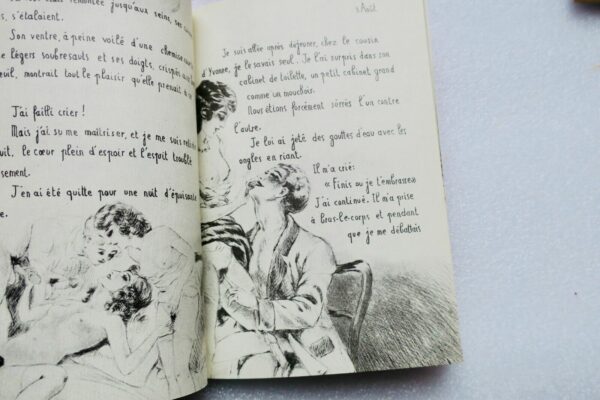 jusqu'aux seins, ses
s, s'étalaient.
Son ventre, à peine voilé d'une
légers soubresauts et ses doigts, crispés
montrait tout le plaisir qu'elle prenait à
J'ai failli crier !
Mais j'ai su me maîtriser, et je me suis
uit, le cœur plein d'espoir et l'esprit troublé
sement.
J'en ai été quitte pour une nuit d'épuisante
e.
3 Août
Je suis allée après déjeuner, chez le cousin
d'Yvonne, je le savais seul. Je l'ai surpris dans son
cabinet de toilette, un petit cabinet grand
comme un mouchoir.
Nous étions forcément serrés l'un contre
l'autre.
Je lui ai jeté des gouttes d'eau avec les
ongles en riant.
Il m'a crié:
« Finis ou je t'embrasse»
J'ai continué. Il m'a prise
à bras-le-corps et pendant
que je me débattais